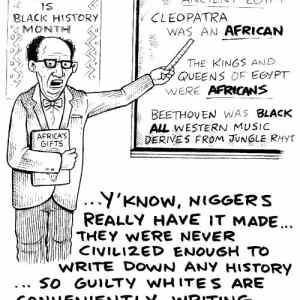 IS
BLACK HISTORY
MONTH
ANCIENT EGYPT
CLEOPATRA
WAS AN AFRICAN
THE KINGS AND
QUEENS OF EGYPT
WERE AFRICANS
BEETHOVEN WAS BLACK
ALL WESTERN MUSIC
DERIVES FROM JUNGLE RHY
AFRICA'S
GIFTS
...Y'KNOW, NIGGERS
REALLY HAVE IT MADE...
THEY WERE NEVER
CIVILIZED ENOUGH TO
WRITE DOWN ANY HISTORY
...SO GUILTY WHITES ARE
CONVENIENTLY WRITING